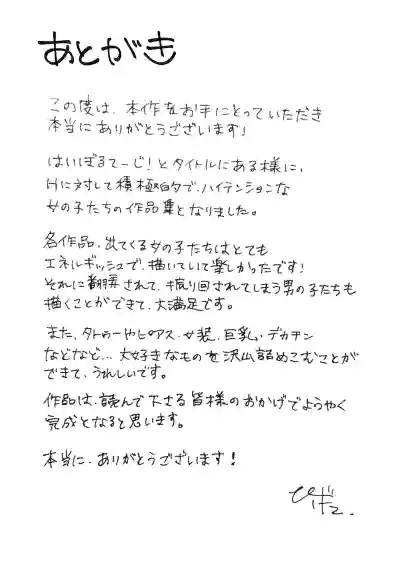 あとがき
この度は、本作をお手にとっていただき
本当にありがとうございます!
はいぼるてーじ!とタイトルにある様に、
Hに対して積極的で、ハイテンションな
女の子たちの作品集となりました。
各作品、出てくる女の子たちはとても
エネルギッシュで、描いていて楽しかったです!
それに翻弄されて、振り回されてしまう男の子たちも
描くことができて、大満足です。
また、タトゥーやピアス、女装、巨乳、デカチン
などなど…大好きなものを沢山詰めこむことが
できて、うれしいです。
作品は、読んで下さる皆様のおかげでようやく
完成となると思います。
本当に、ありがとうございます!